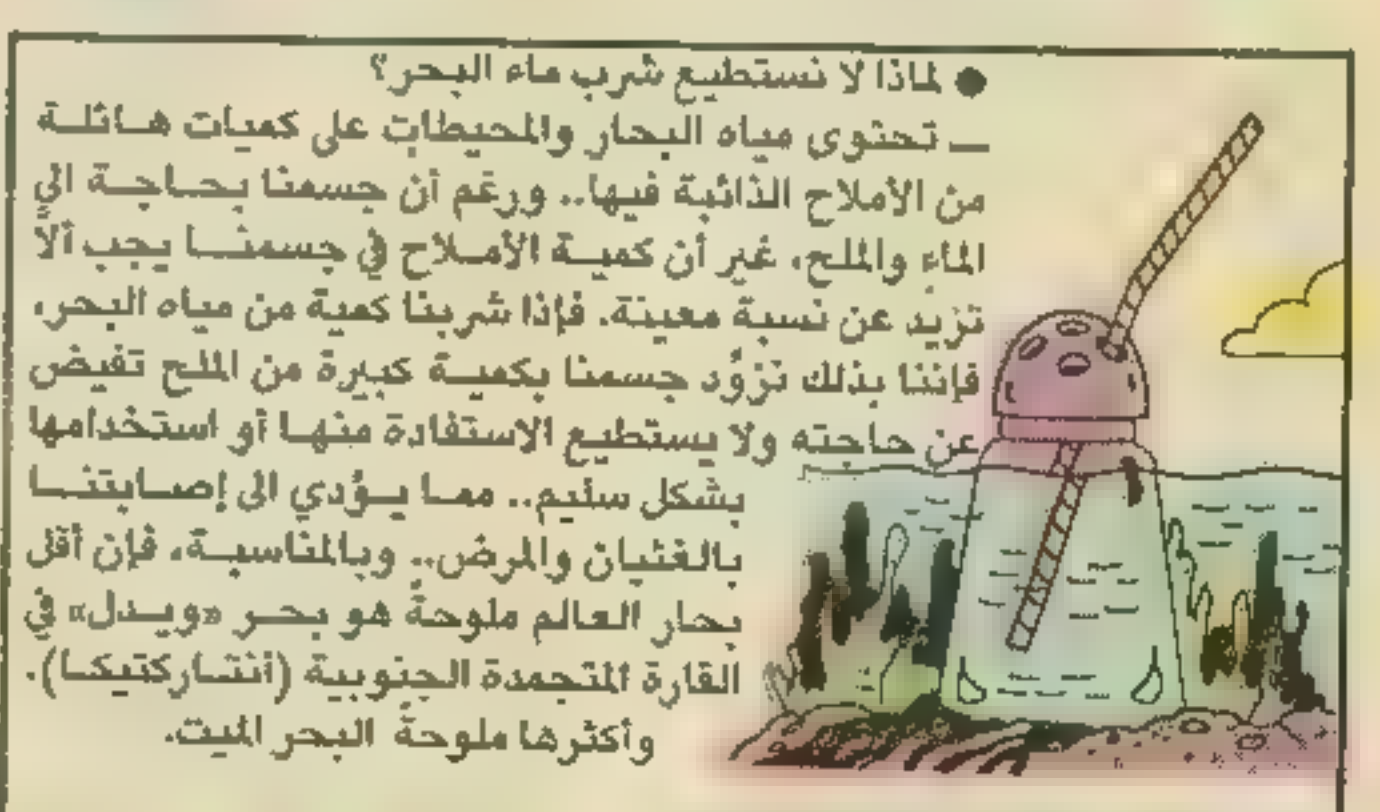 ● لماذا لا نستطيع شرب ماء البحر؟
ــ تحتوى مياه البحار والمحيطات على كميات هـائلـة
من الأملاح الذائبة فيها.. ورغم أن جسمنا بحـاجـة الى
الماء والملح، غير أن كميـة الأمـلاح في جسمنـا يجب ألاّ
تزيد عن نسبة معينة. فإذا شربنا كمية من مياه البحر،
فإننا بذلك نزوُّد جسمنا بكميـة كبيرة من الملح تفيض
عن حاجته ولا يستطيع الاستفادة منهـا أو استخدامها
بشكل سليم.. ممـا يـؤدي الى إصـابتنـا
بالغثيان والمرض.. وبالمناسبـة، فإن أقل
بحار العالم ملوحةً هو بحـر «ويـدل» في
القارة المتجمدة الجنوبية (انتـاركتيكـا).
وأكثرها ملوحةً البحر الميت.